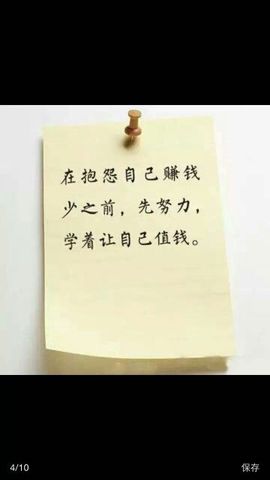 在抱怨自己赚钱
少之前，先努力，
学着让自己值钱。
4/10
保存